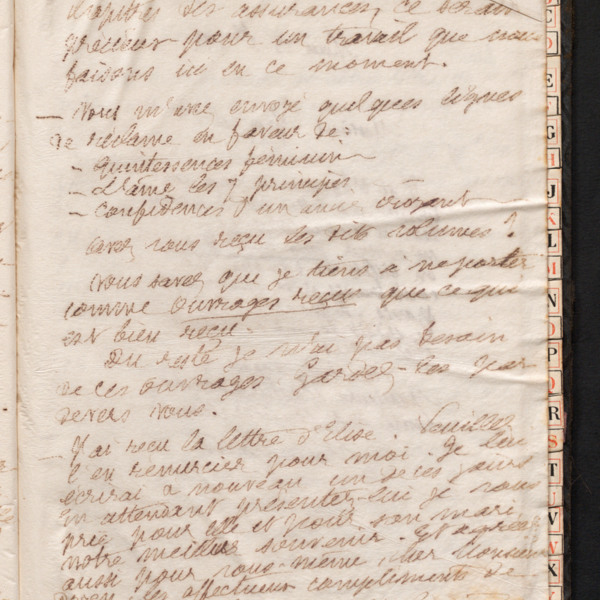 des assurances, ce serait
précieux pour un travail que nous
faisons ici en ce moment.
— Vous m'avez envoyé quelques lignes
de réclame en faveur de:
- quintessences féminin
- L'âme les 7 principes
- confidences d'un ancien croyant
avez vous reçu les dits volumes?
Vous savez que je tiens à ne porter
comme Ouvrages reçus que ce qui
est bien reçu.
Du reste je n'ai pas besoin
de ces ouvrages Gardez-les par
devers vous.
- J'ai reçu la lettre d'Elise. Veuillez
l'en remercier pour moi. Je lui
écrirai à nouveau un de ces jours
en attendant présentez-lui je vous
prie pour elle et pour son mari
notre meilleur souvenir. Et agréez
aussi pour vous-même, cher Monsieur
les affectueux compliments de
C
D
E
F
G
H
J
K
L
M
N
O
P
Q
R
S
T
U
V
W
X